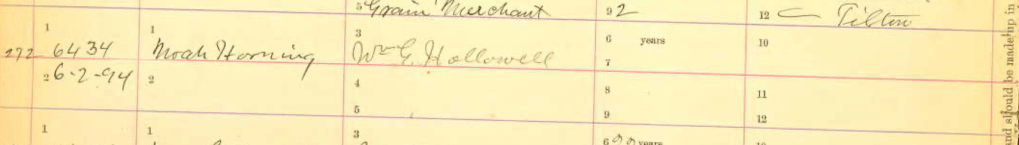 5 Grain Merchant 92 12 Tilton
1 1 3 6 years 10
272 6434 Noah Horning Wm G. Hollowell
7
2 6-2-94 2 4 8 11
5 9 12
1 1 3 6 years
and should be made up in